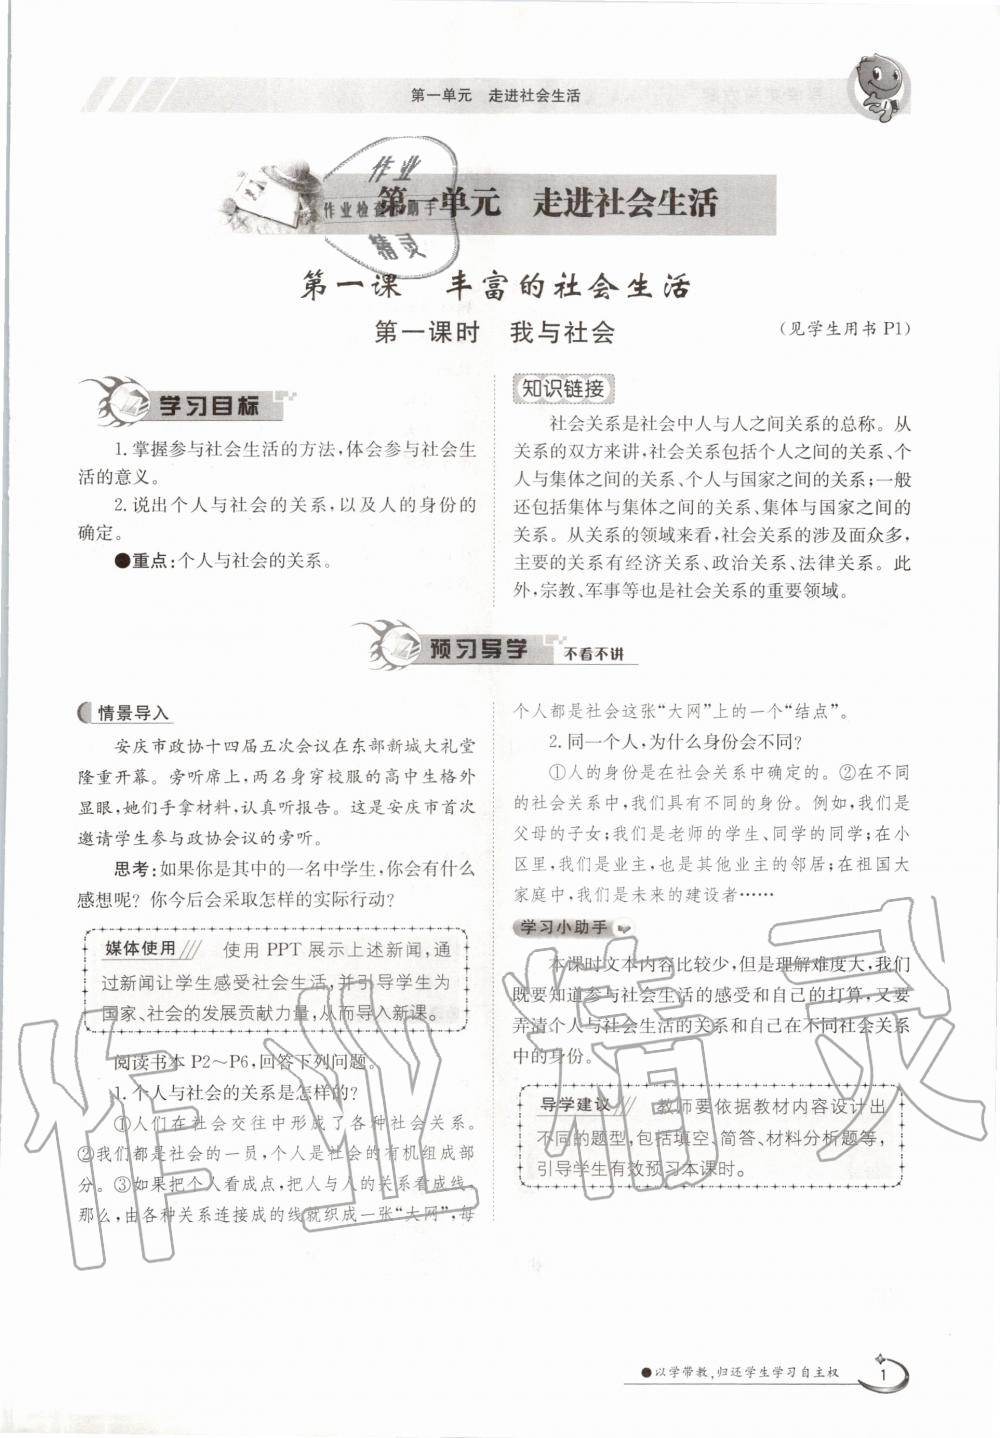 第一单元　走进社会生活
作业
作业检查助手
精灵
第一单元　走进社会生活
第一课　丰富的社会生活
第一课时　我与社会
(见学生用书 P1)
学习目标
1. 掌握参与社会生活的方法,体会参与社会生
活的意义。
2. 说出个人与社会的关系,以及人的身份的
确定。
●重点:个人与社会的关系。
知识链接
社会关系是社会中人与人之间关系的总称。从
关系的双方来讲,社会关系包括个人之间的关系、个
人与集体之间的关系、个人与国家之间的关系;一般
还包括集体与集体之间的关系、集体与国家之间的
关系。从关系的领域来看,社会关系的涉及面众多,
主要的关系有经济关系、政治关系、法律关系。此
外,宗教、军事等也是社会关系的重要领域。
预习导学　不看不讲
情景导入
安庆市政协十四届五次会议在东部新城大礼堂
隆重开幕。旁听席上,两名身穿校服的高中生格外
显眼,她们手拿材料,认真听报告。这是安庆市首次
邀请学生参与政协会议的旁听。
思考:如果你是其中的一名中学生,你会有什么
感想呢?你今后会采取怎样的实际行动?
媒体使用　使用 PPT 展示上述新闻,通
过新闻让学生感受社会生活,并引导学生为
国家、社会的发展贡献力量,从而导入新课。
阅读书本 P2～P6,回答下列问题。
1. 个人与社会的关系是怎样的?
①人们在社会交往中形成了各种社会关系。
②我们都是社会的一员,个人是社会的有机组成部
分。③如果把个人看成点,把人与人的关系看成线,
那么,由各种关系连接成的线就织成一张“大网”,每
个人都是社会这张“大网”上的一个“结点”。
2. 同一个人,为什么身份会不同?
①人的身份是在社会关系中确定的。②在不同
的社会关系中,我们具有不同的身份。例如,我们是
父母的子女;我们是老师的学生、同学的同学;在小
区里,我们是业主,也是其他业主的邻居;在祖国大
家庭中,我们是未来的建设者……
学习小助手
本课时文本内容比较少,但是理解难度大,我们
既要知道参与社会生活的感受和自己的打算,又要
弄清个人与社会生活的关系和自己在不同社会关系
中的身份。
导学建议　教师要依据教材内容设计出
不同的题型,包括填空、简答、材料分析题等,
引导学生有效预习本课时。
作业精灵
●以学带教,归还学生学习自主权
1